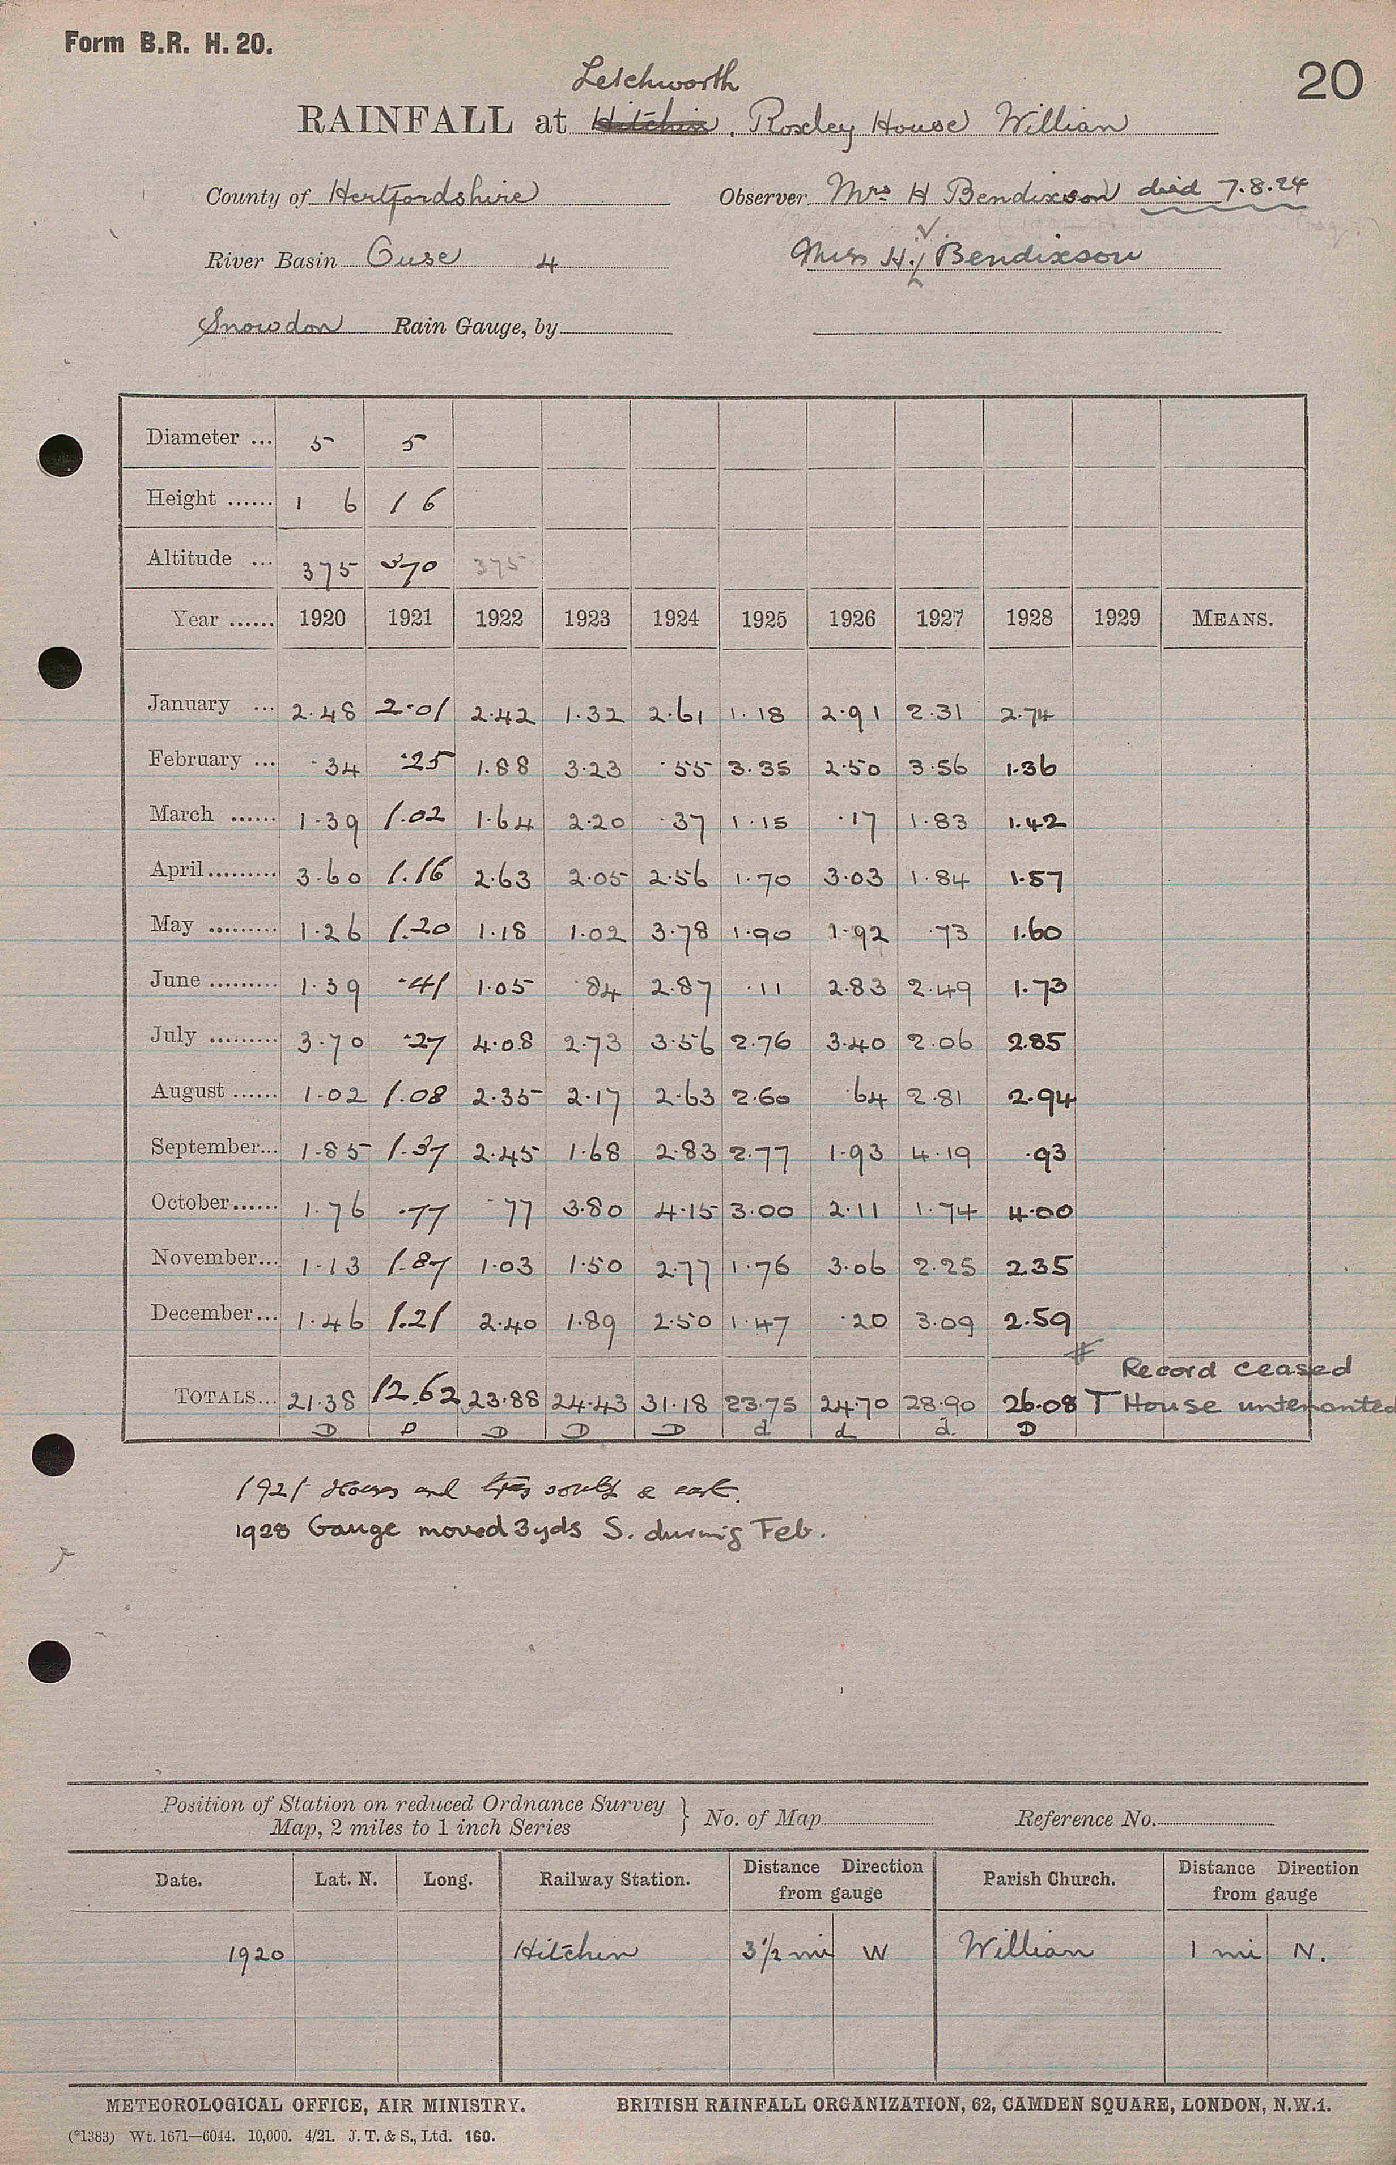 Form B.R. H. 20.
20
Letchworth
RAINFALL at Hitchin. Roxley House Willian
County of Hertfordshire Observer Mrs H Bendixson died 7.8.24
River Basin Ouse 4 Miss H. Bendixson
Snowdon Rain Gauge, by
Diameter ... 5 5
Height ...... 1 6 1 6
Altitude ... 375 370 375
Year ...... 1920 1921 1922 1923 1924 1925 1926 1927 1928 1929 MEANS.
January ... 2.48 2.01 2.42 1.32 2.61 1.18 2.91 2.31 2.74
February ... .34 .25 1.88 3.23 .55 3.35 2.50 3.56 1.36
March ...... 1.39 1.02 1.64 2.20 .37 1.15 .17 1.83 1.42
April ......... 3.60 1.16 2.63 2.05 2.56 1.70 3.03 1.84 1.57
May ......... 1.26 1.20 1.18 1.02 3.78 1.90 1.92 .73 1.60
June ......... 1.39 .41 1.05 .84 2.87 .11 2.83 2.49 1.73
July ......... 3.70 .27 4.08 2.73 3.56 2.76 3.40 2.06 2.85
August ...... 1.02 1.08 2.35 2.17 2.63 2.60 .64 2.81 2.94
September... 1.85 1.37 2.45 1.68 2.83 2.77 1.93 4.19 .93
October...... 1.76 .77 .77 3.80 4.15 3.00 2.11 1.74 4.00
November... 1.13 1.87 1.03 1.50 2.77 1.76 3.06 2.25 2.35
December... 1.46 1.21 2.40 1.89 2.50 1.47 .20 3.09 2.59
Record ceased
TOTALS... 21.38 12.62 23.88 24.43 31.18 23.75 24.70 28.90 26.08 T House untenanted
D D D D D d d d D
1921 House and trees south & east.
1928 Gauge moved 3yds S. during Feb.
Position of Station on reduced Ordnance Survey
Map, 2 miles to 1 inch Series } No. of Map Reference No.
Date. Lat. N. Long. Railway Station. Distance Direction from gauge Parish Church. Distance Direction from gauge
1920 Hitchin 3½ mi W Willian 1 mi N.
METEOROLOGICAL OFFICE, AIR MINISTRY. BRITISH RAINFALL ORGANIZATION, 62, CAMDEN SQUARE, LONDON, N.W.1.
(*1383) Wt. 1671—6044. 10,000. 4/21. J. T. & S., Ltd. 160.